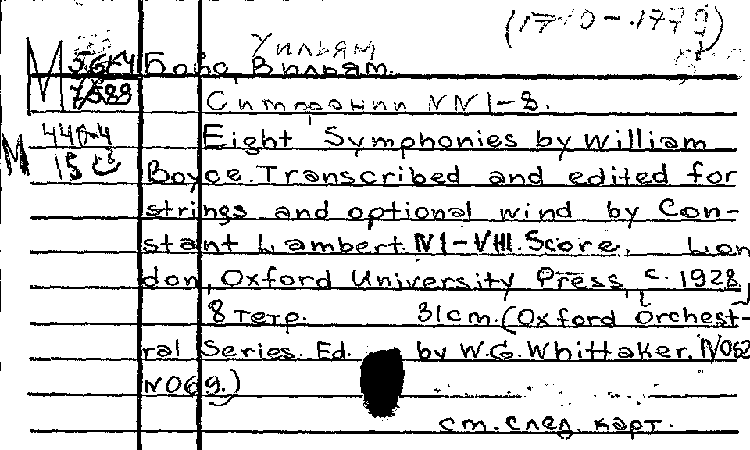 (1710-1779)
Уильям
М 5614 Бойс, Вильям.
7/588 Симфонии NN 1-8.
М 440-4 Eight Symphonies by William
15 Boyce. Transcribed and edited for
strings and optional wind by Con-
stant Lambert. N I-VIII. Score. Lon-
don, Oxford University Press, [c. 1928]
8 тетр. 31 cm. (Oxford Orchest-
ral Series. Ed. by W.G. Whittaker. N062
N069.)
см. след. карт.